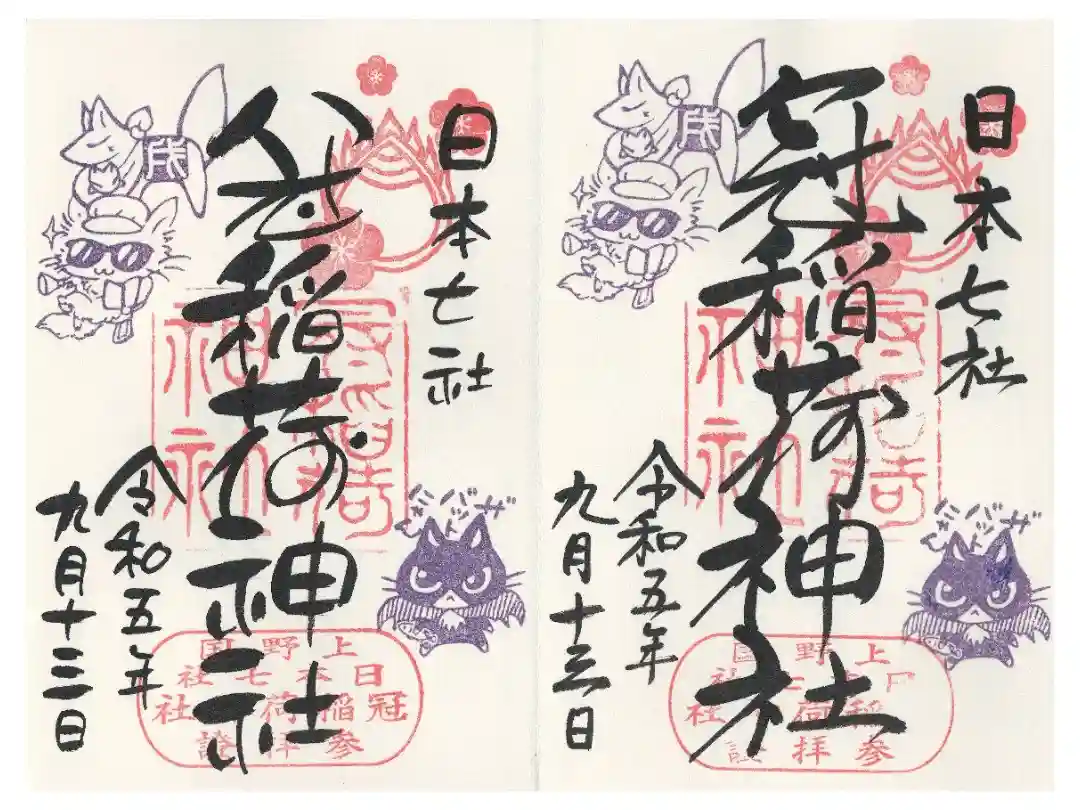 日本七社
冠稲荷神社
令和五年
九月十三日
冠稲荷
神社
上野国
日本七社
冠稲荷神社
参拝證
日本七社
冠稲荷神社
令和五年
九月十三日
冠稲荷
神社
上野国
日本七社
冠稲荷神社
参拝證